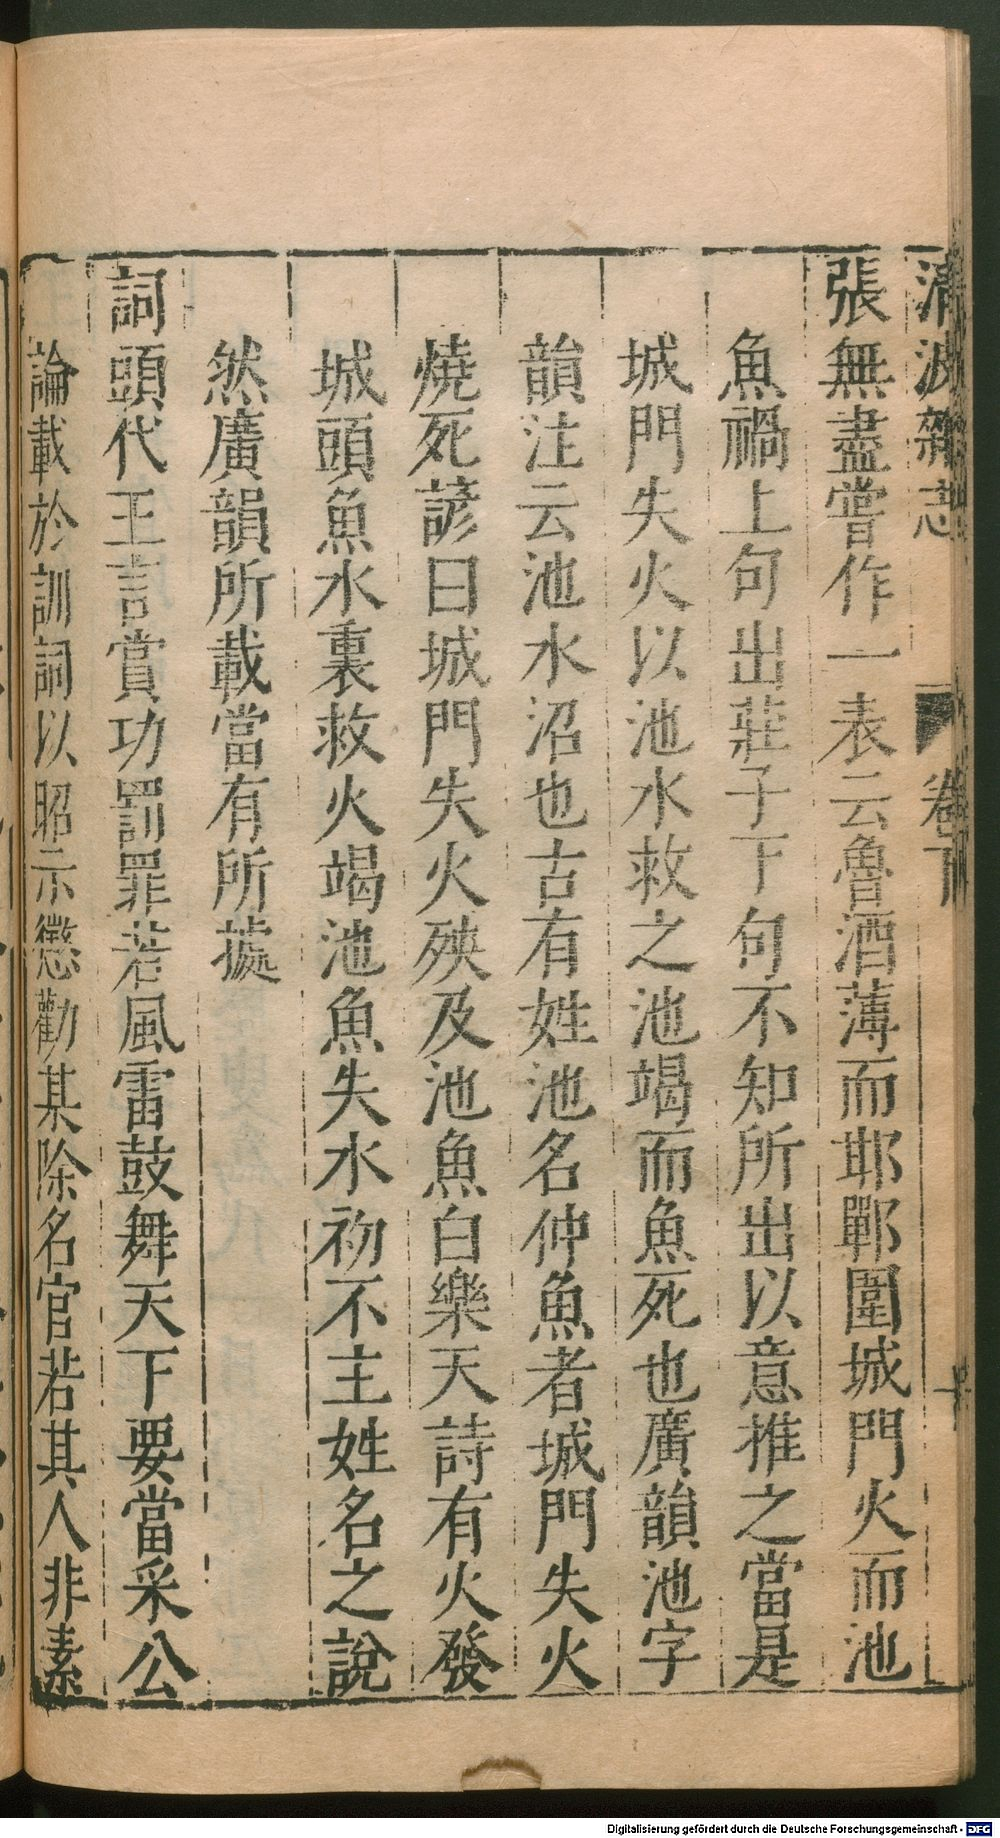 清波雜志 卷下
張無盡嘗作一表云魯酒薄而耶鄲圍城門火而池
魚禍上句出莊子下句不知所出以意推之當是
城門失火以池水救之池竭而魚死也廣韻池字
韻注云池水沼也古有姓池名仲魚者城門失火
燒死諺曰城門失火殃及池魚白樂天詩有火發
城頭魚水裏救火竭池魚失水初不主姓名之說
然廣韻所載當有所據
詞頭代王言賞功罰罪若風雷鼓舞天下要當采公
論載於訓詞以昭示懲勸某除名官若其人非素
Digitalisierung gefördert durch die Deutsche Forschungsgemeinschaft - DFG